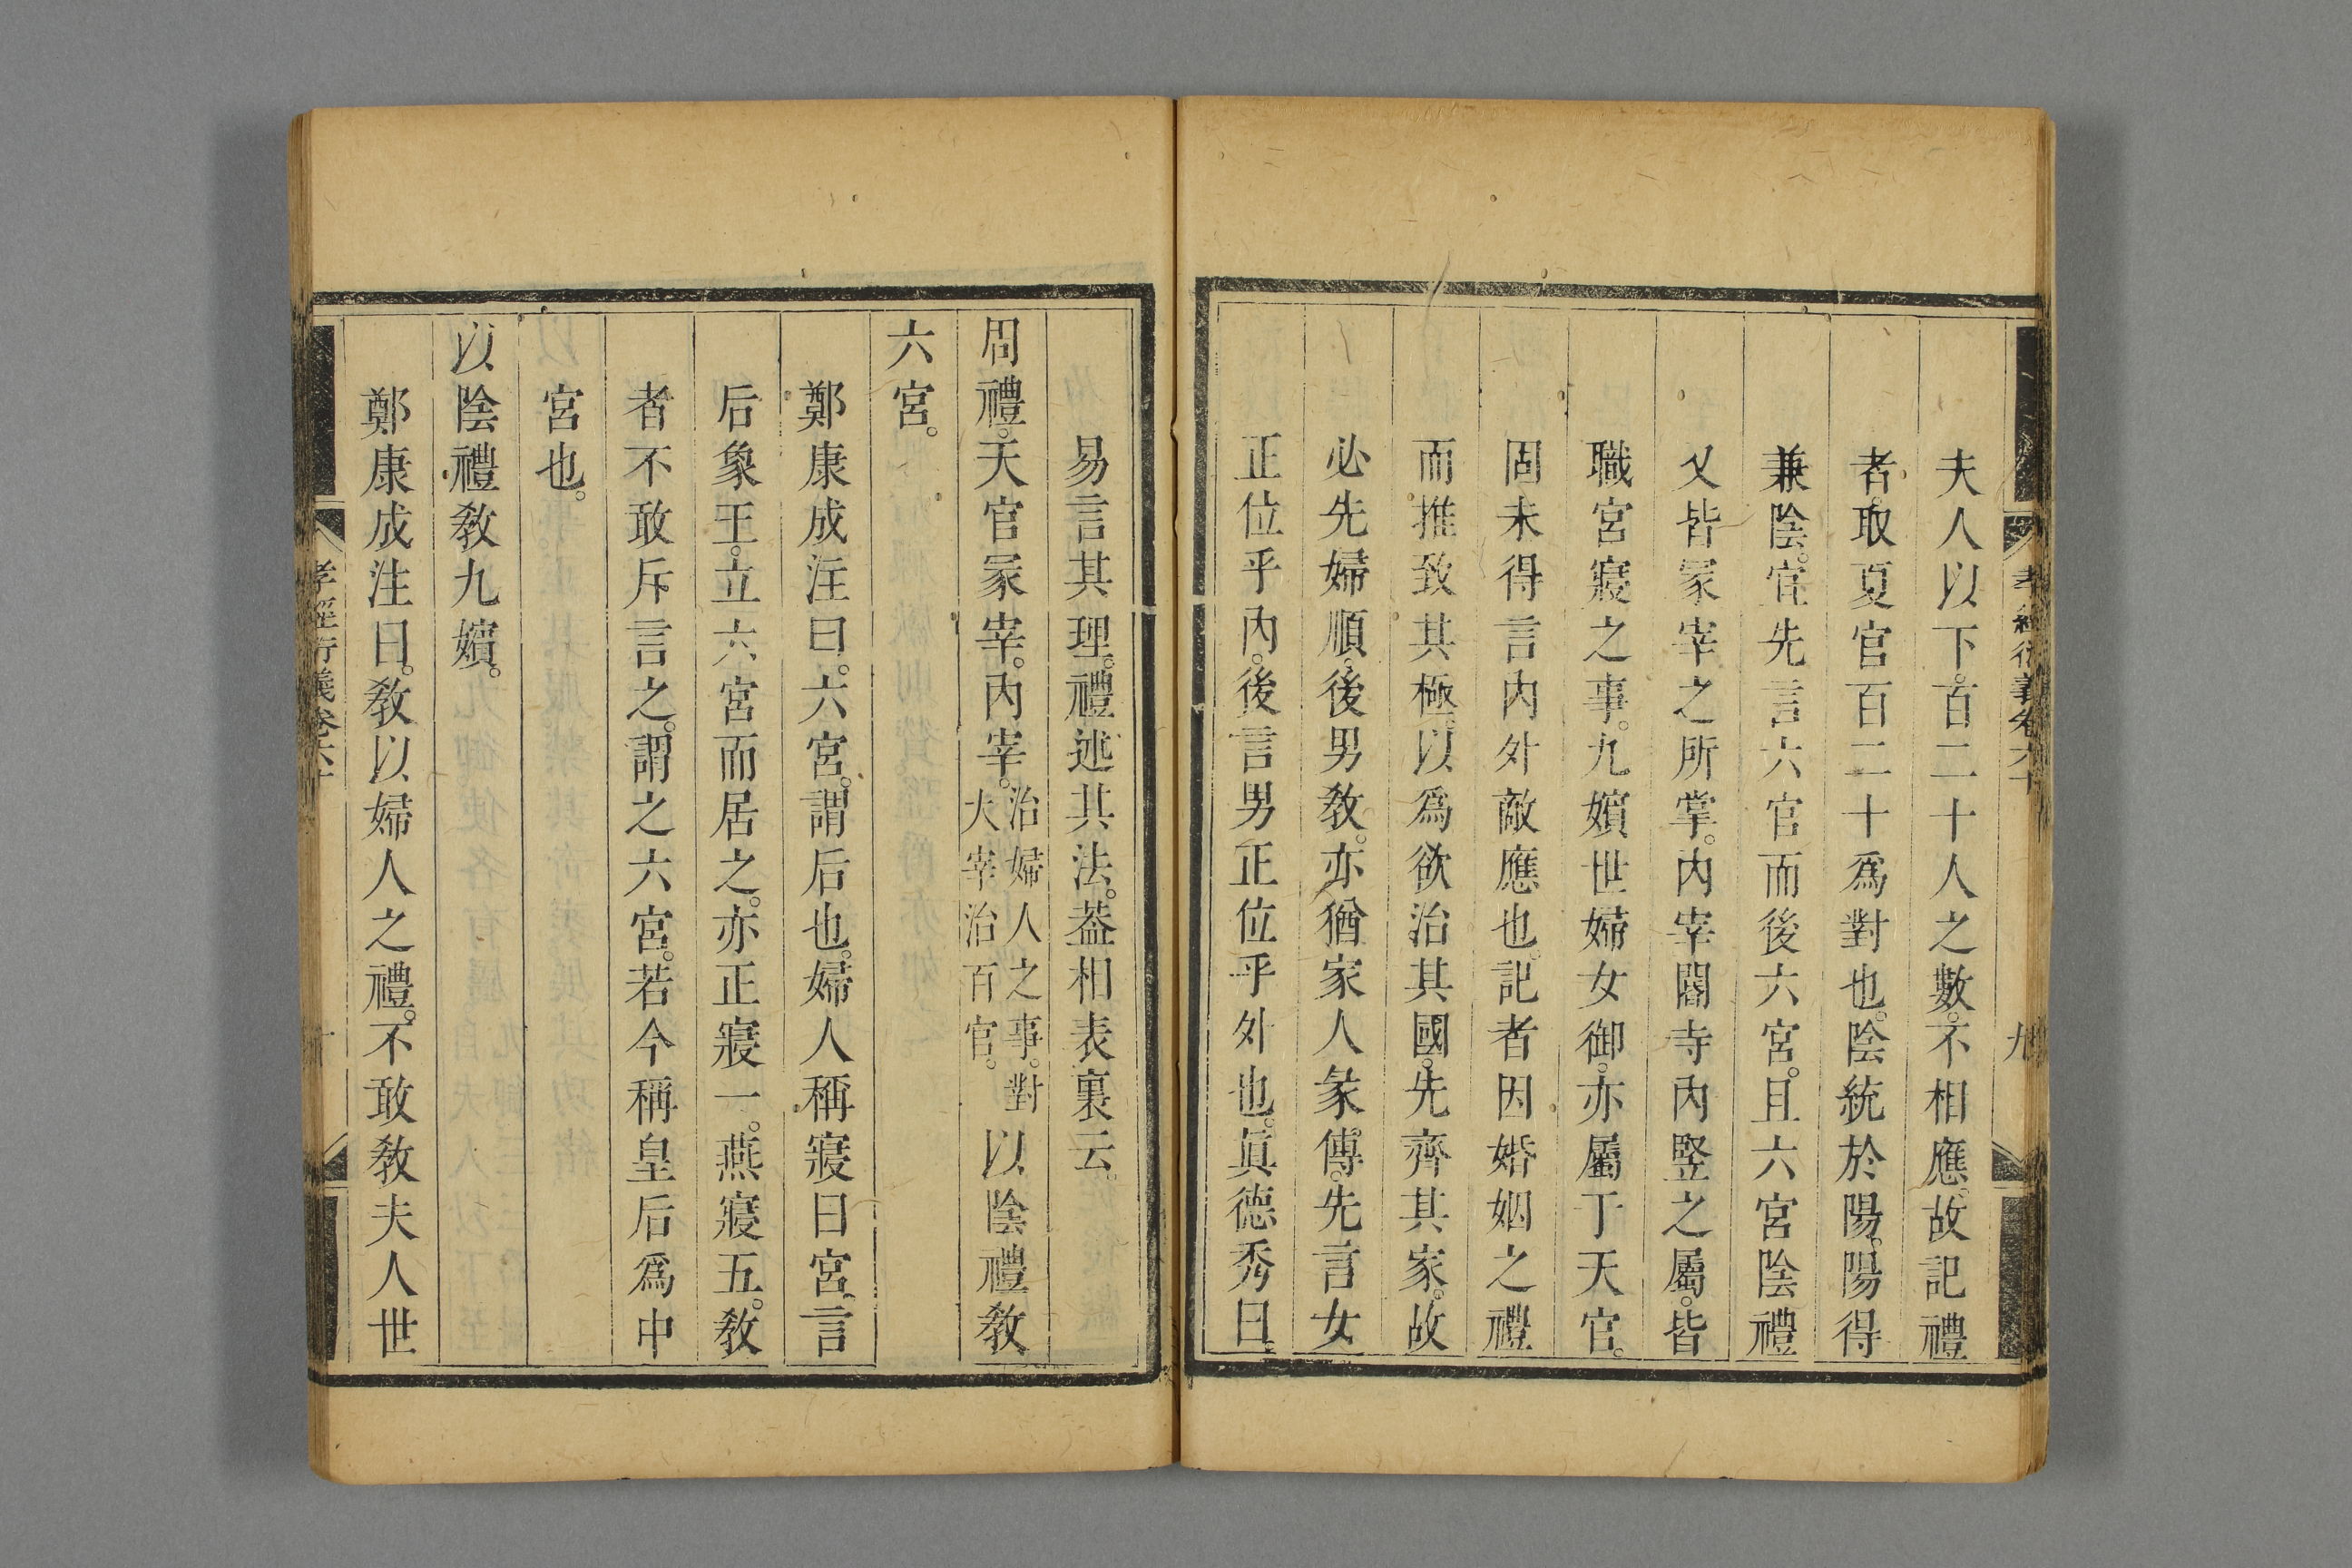 孝經衍義卷六十
九
夫人以下。百二十人之數。不相應。故記禮
者。取夏官百二十爲對也。陰統於陽。陽得
兼陰。宜先言六官而後六宮。且六宮陰禮
又皆冢宰之所掌。內宰閽寺內豎之屬。皆
職宮寢之事。九嬪世婦女御。亦屬于天官。
固未得言內外敵應也。記者因婚姻之禮
而推致其極。以爲欲治其國。先齊其家。故
必先婦順。後男敎。亦猶家人彖傳。先言女
正位乎內。後言男正位乎外也。眞德秀曰。
易言其理。禮述其法。葢相表裏云。
周禮。天官冢宰。內宰。治婦人之事。對大宰治百官。以陰禮敎
六宮。
鄭康成注曰。六宮。謂后也。婦人稱寢曰宮。言
后象王。立六宮而居之。亦正寢一。燕寢五。敎
者不敢斥言之。謂之六宮。若今稱皇后爲中
宮也。
以陰禮敎九嬪。
鄭康成注曰。敎以婦人之禮。不敢敎夫人世
孝經衍義卷六十
十